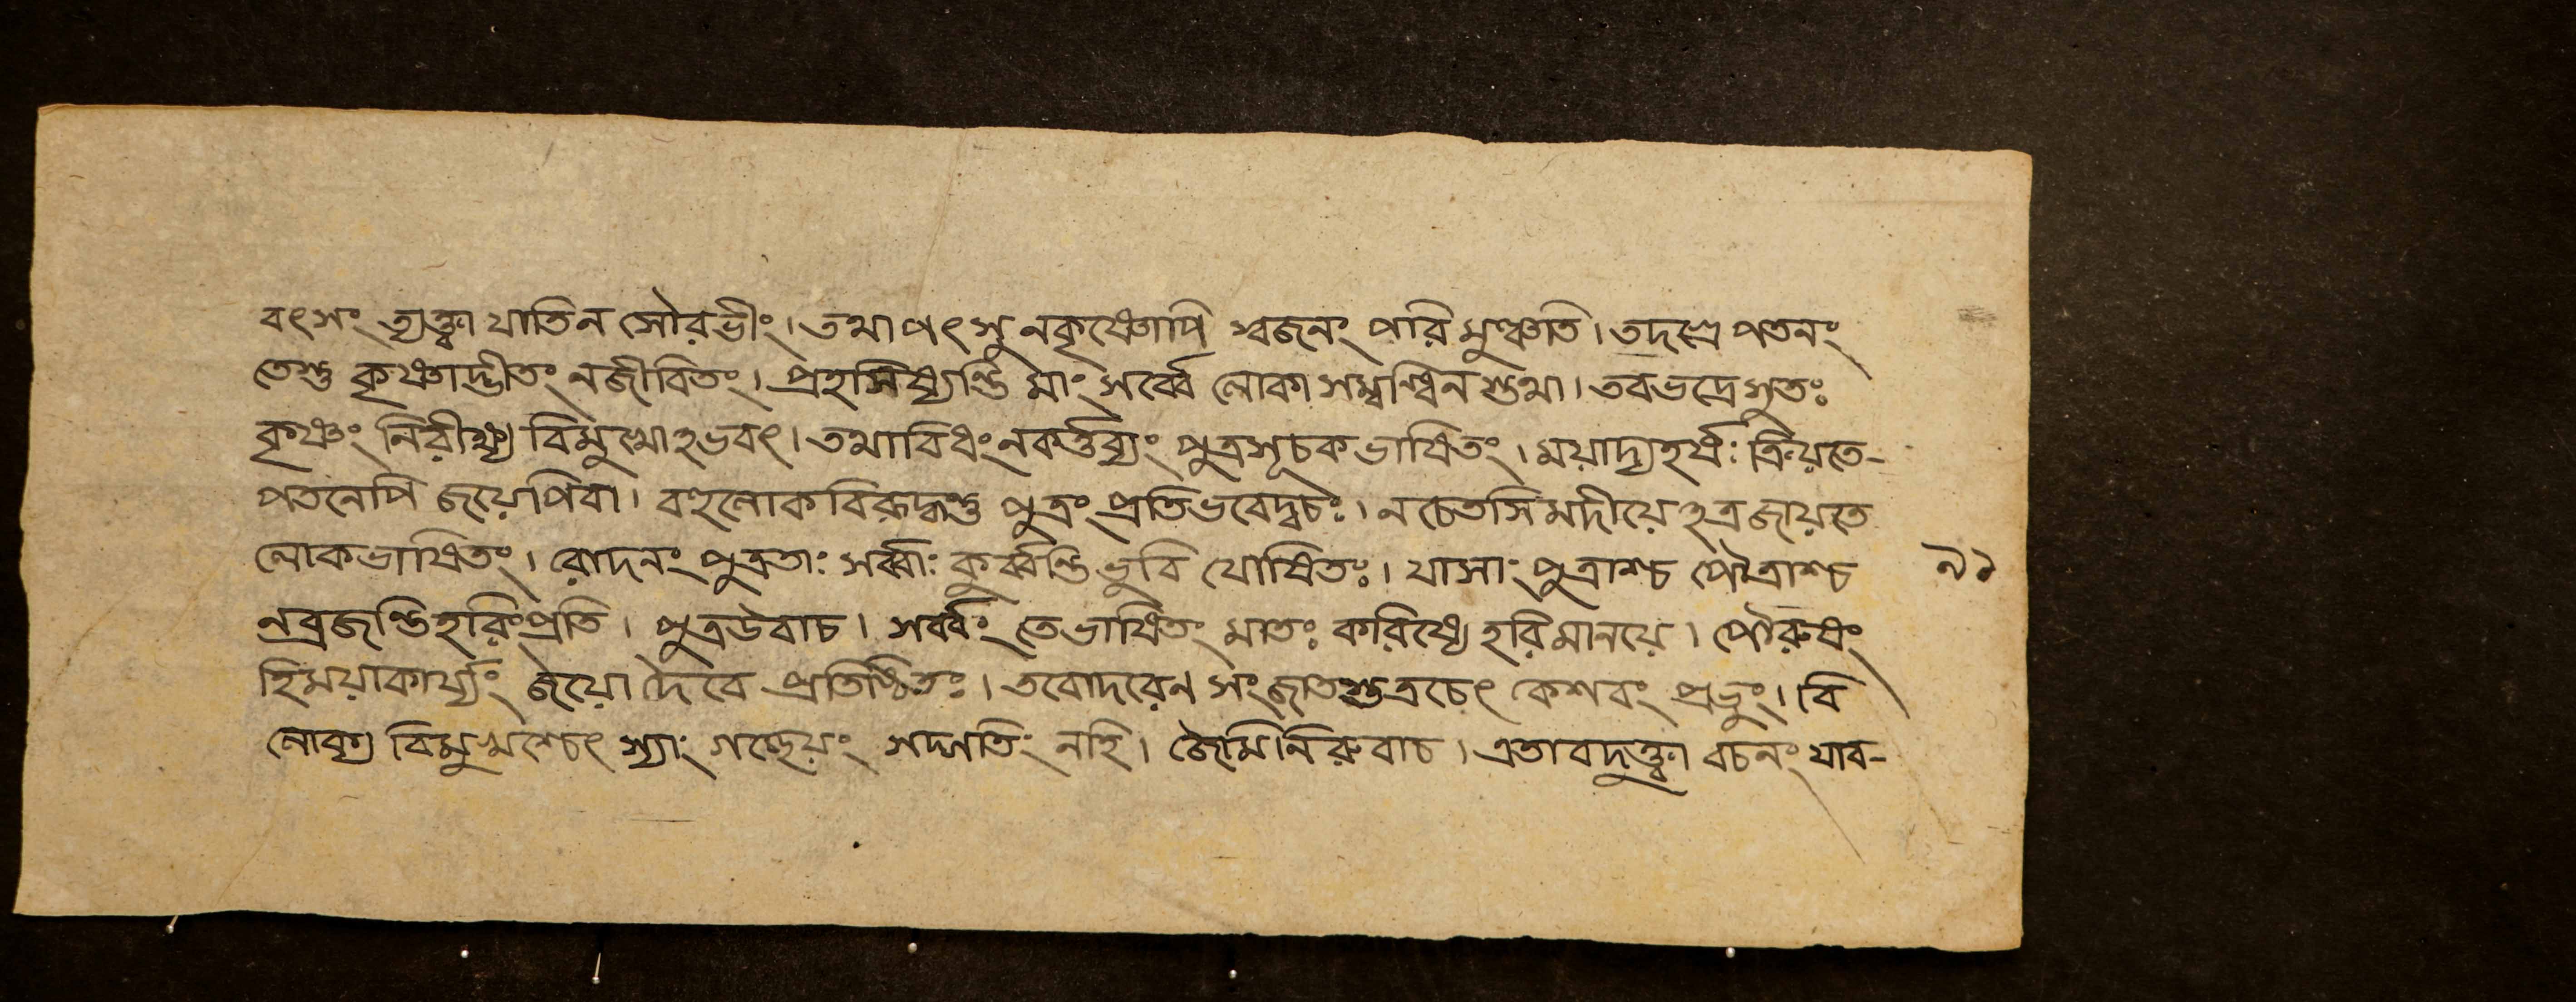 বৎসং ত্যক্ত্বা যাতি ন সৌরভীং। তথাপৎসু ন কৃষ্ণোপি স্বজনং পরিমুঞ্চতি। তদগ্রে পতনং
তেস্তু কৃষ্ণাদ্ভীতং ন জীবিতং। প্রহসিষ্যন্তি মাং সর্ব্বে লোকা সম্বন্ধিনস্তথা। তব ভদ্রে সুতঃ
কৃষ্ণং নিরীক্ষ্য বিমুখোঽভবৎ। তথাবিধং ন কর্ত্তব্যং পুত্র সূচকভাষিতং। ময়াদ্য হর্ষঃ ক্রিয়তে-
পতনেপি জয়েপি বা। বহুলোকবিরুদ্ধন্তু পুত্রং প্রতি ভবেদ্বচঃ। ন চেতসি মদীয়েঽত্র জায়তে
লোকভাষিতং। রোদনং পুত্রতাঃ সর্ব্বাঃ কুর্ব্বন্তি ভুবি যোষিতঃ। যাসাং পুত্রাশ্চ পৌত্রাশ্চ
ন ব্রজন্তি হরিং প্রতি। পুত্র উবাচ। সর্ব্বং তে ভাষিতং মাতঃ করিষ্যে হরিমানয়ে। পৌরুষং
হি ময়া কার্য্যং জয়ো দৈবে প্রতিষ্ঠিতঃ। তবোদরেন সংজাতস্তত্র চেৎ কেশবং প্রভুং। বি
লোক্য বিমুখশ্চেৎ স্যাং গচ্ছেয়ং সদ্গতিং নহি। জৈমিনিরুবাচ। এতাবদুক্ত্বা বচনং যাব-
৯১